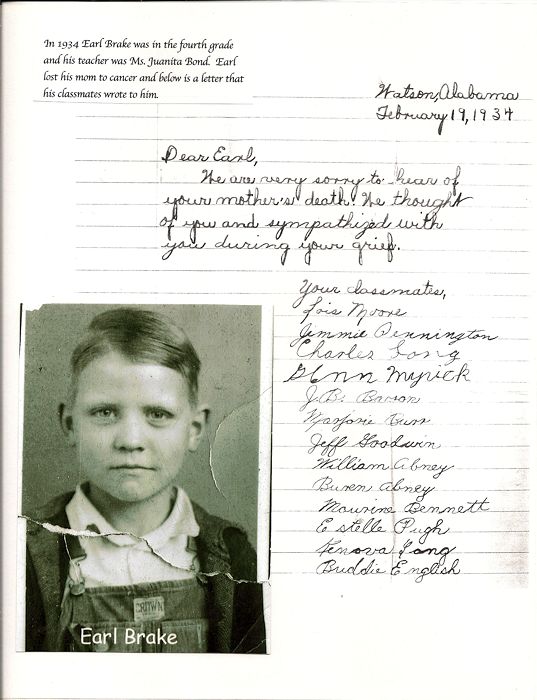 In 1934 Earl Brake was in the fourth grade
and his teacher was Ms. Juanita Bond. Earl
lost his mom to cancer and below is a letter that
his classmates wrote to him.
Watson, Alabama
February 19, 1934
Dear Earl,
We are very sorry to hear of
your mother's death. We thought
of you and sympathized with
you during your grief.
Your classmates,
Lois Moore
Jimmie Pennington
Charles Long
Glenn Myrick
J.B. Barson
Marjorie Burr
Jeff Goodwin
William Abney
Buren Abney
Maurine Bennett
Estelle Pugh
Lenova Long
Buddie English
CROWN
Earl Brake